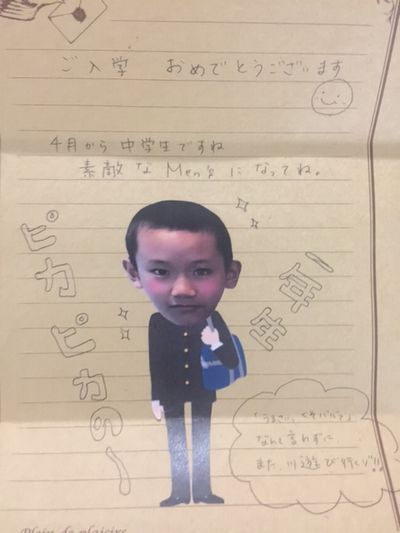 ご入学 おめでとうございます
4月から中学生ですね
素敵な Men's になってね。
ピカピカの
一年生
「うるさい、くそババァ」
なんて言わずに
また、川遊び行くゾ!!
Plain de plaisirs